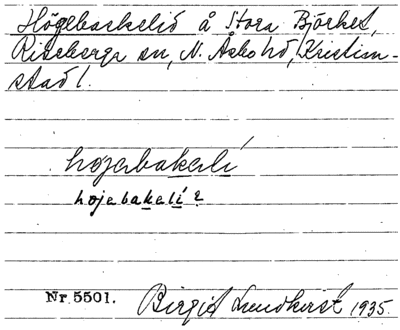 Högebackelid å Stora Björket,
Riseberga sn, N. Åsbo hd, Kristian-
stad l.
hojabakalí
hojabakalí?
Nr 5501. Birgit Lundkvist 1935.